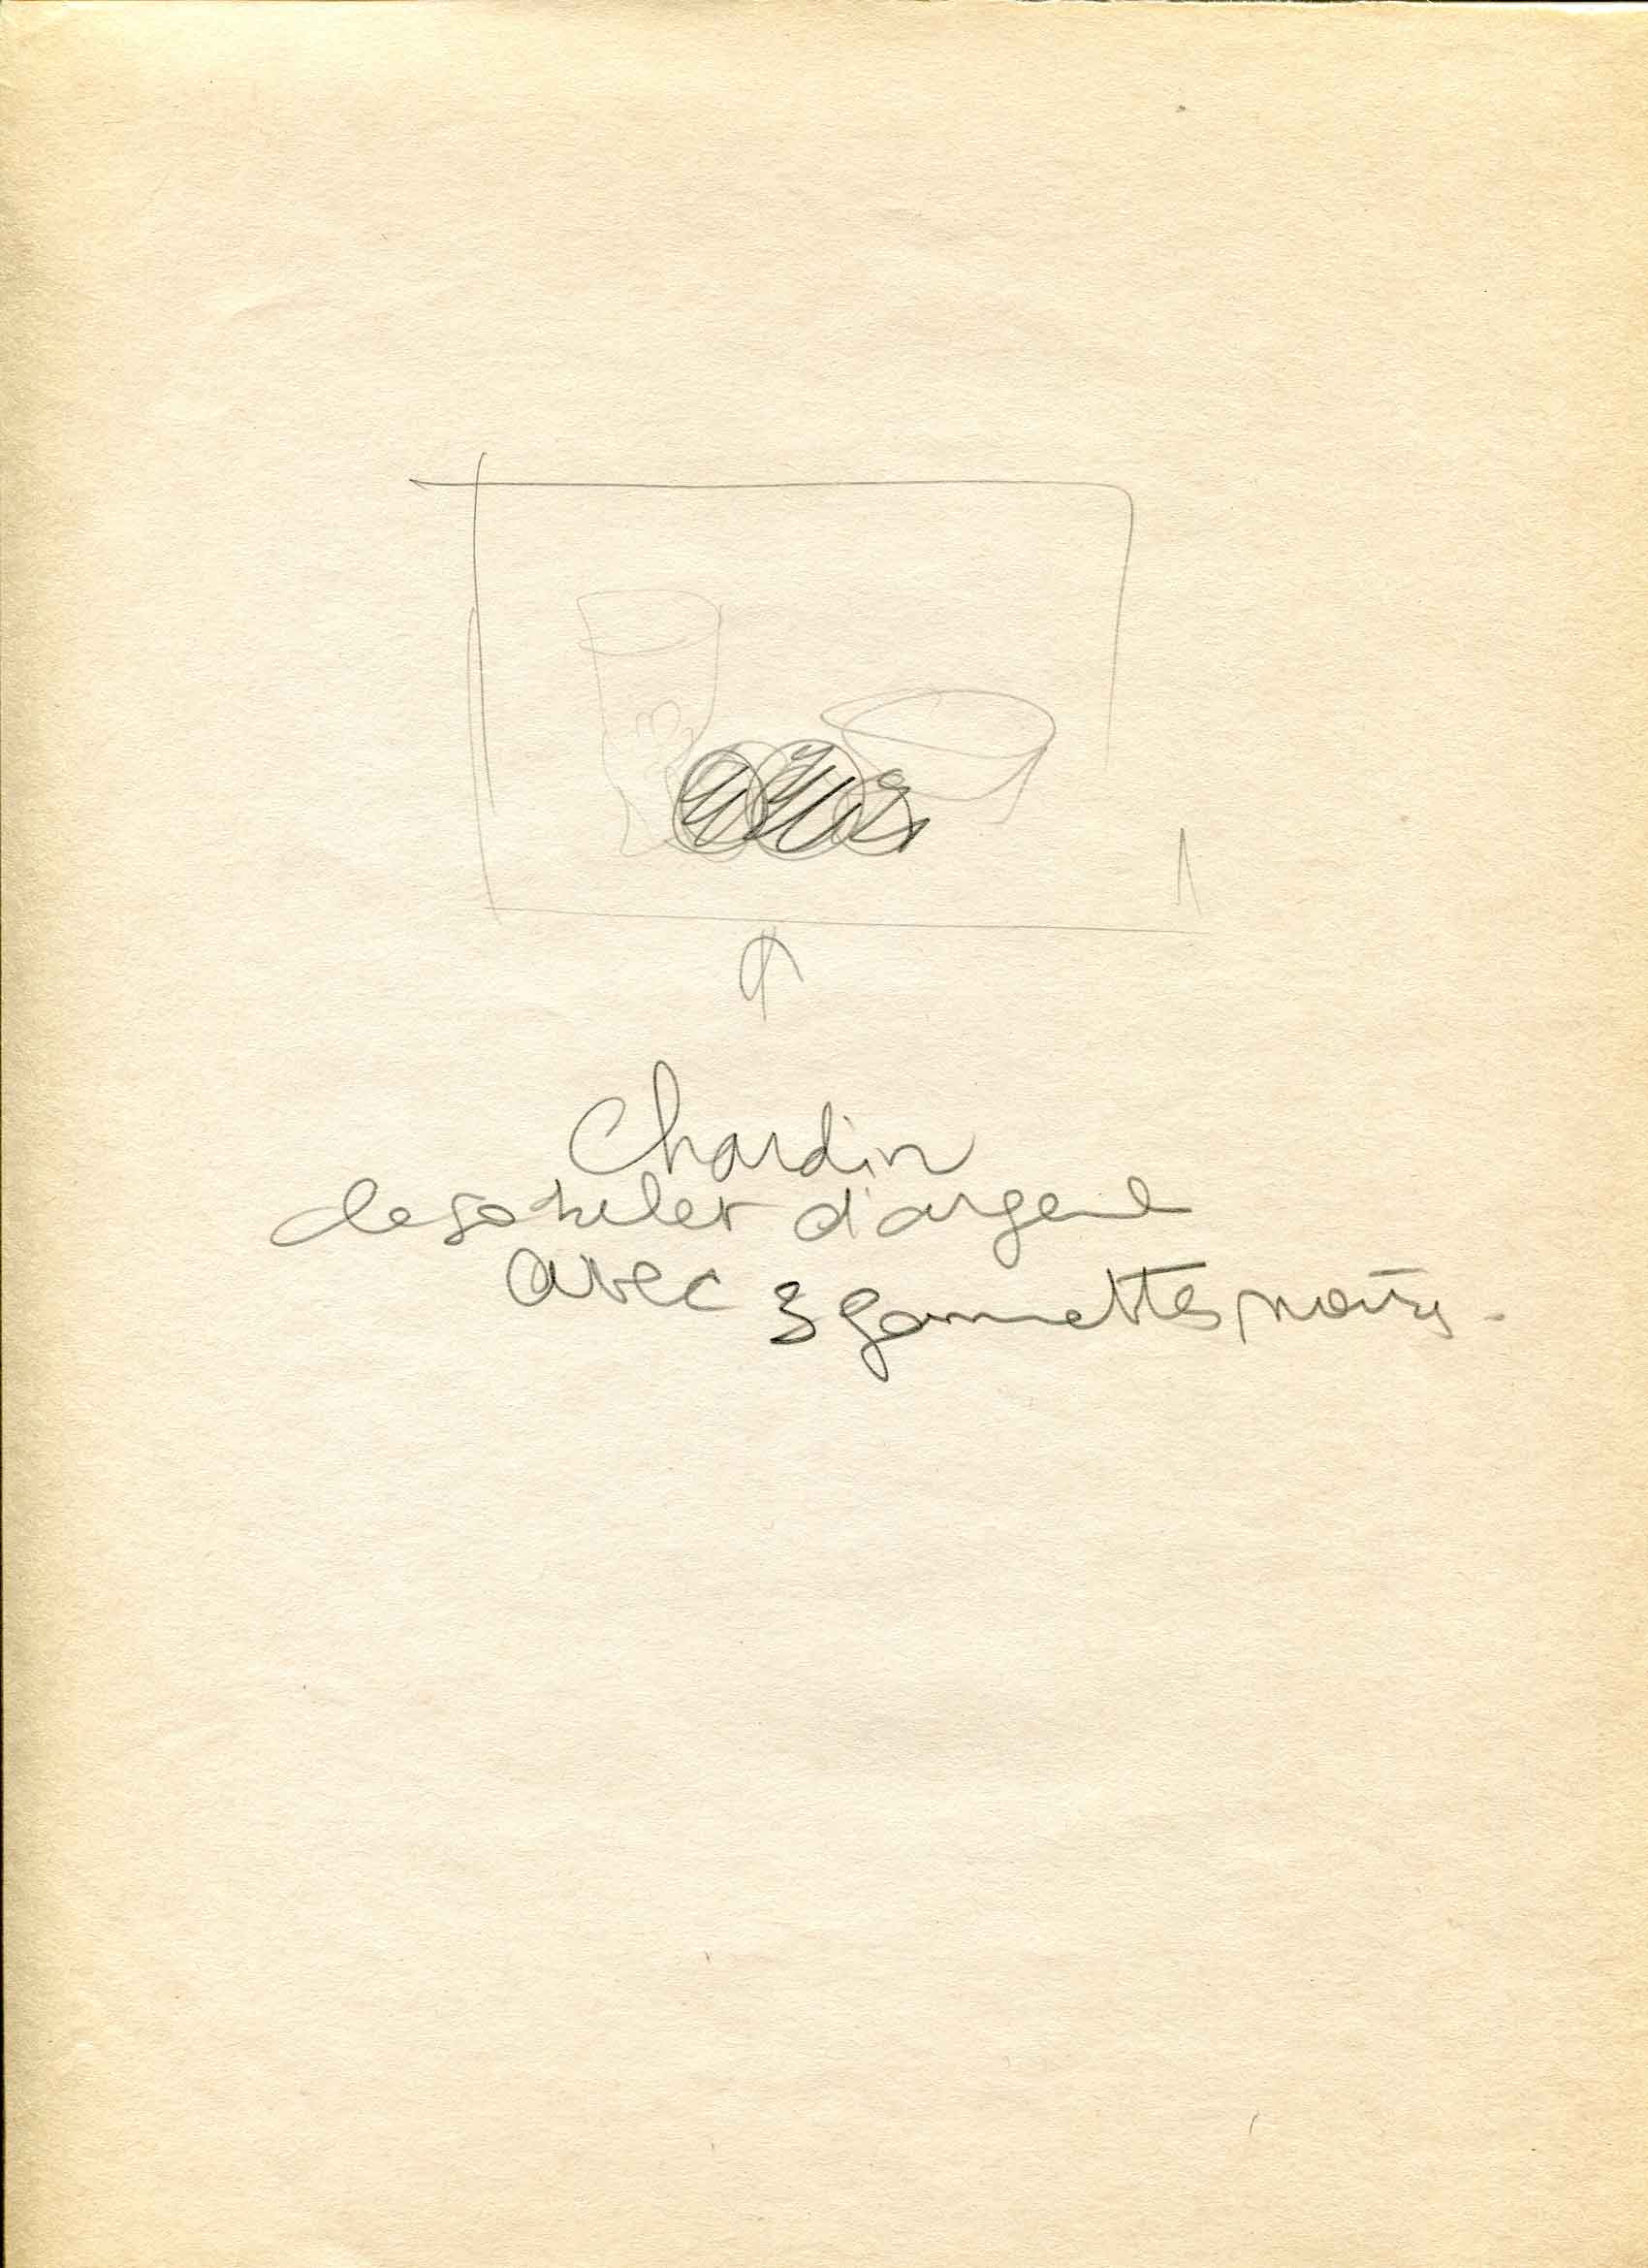 Chardin
le gobelet d'argent
avec 3 pommettes noires.